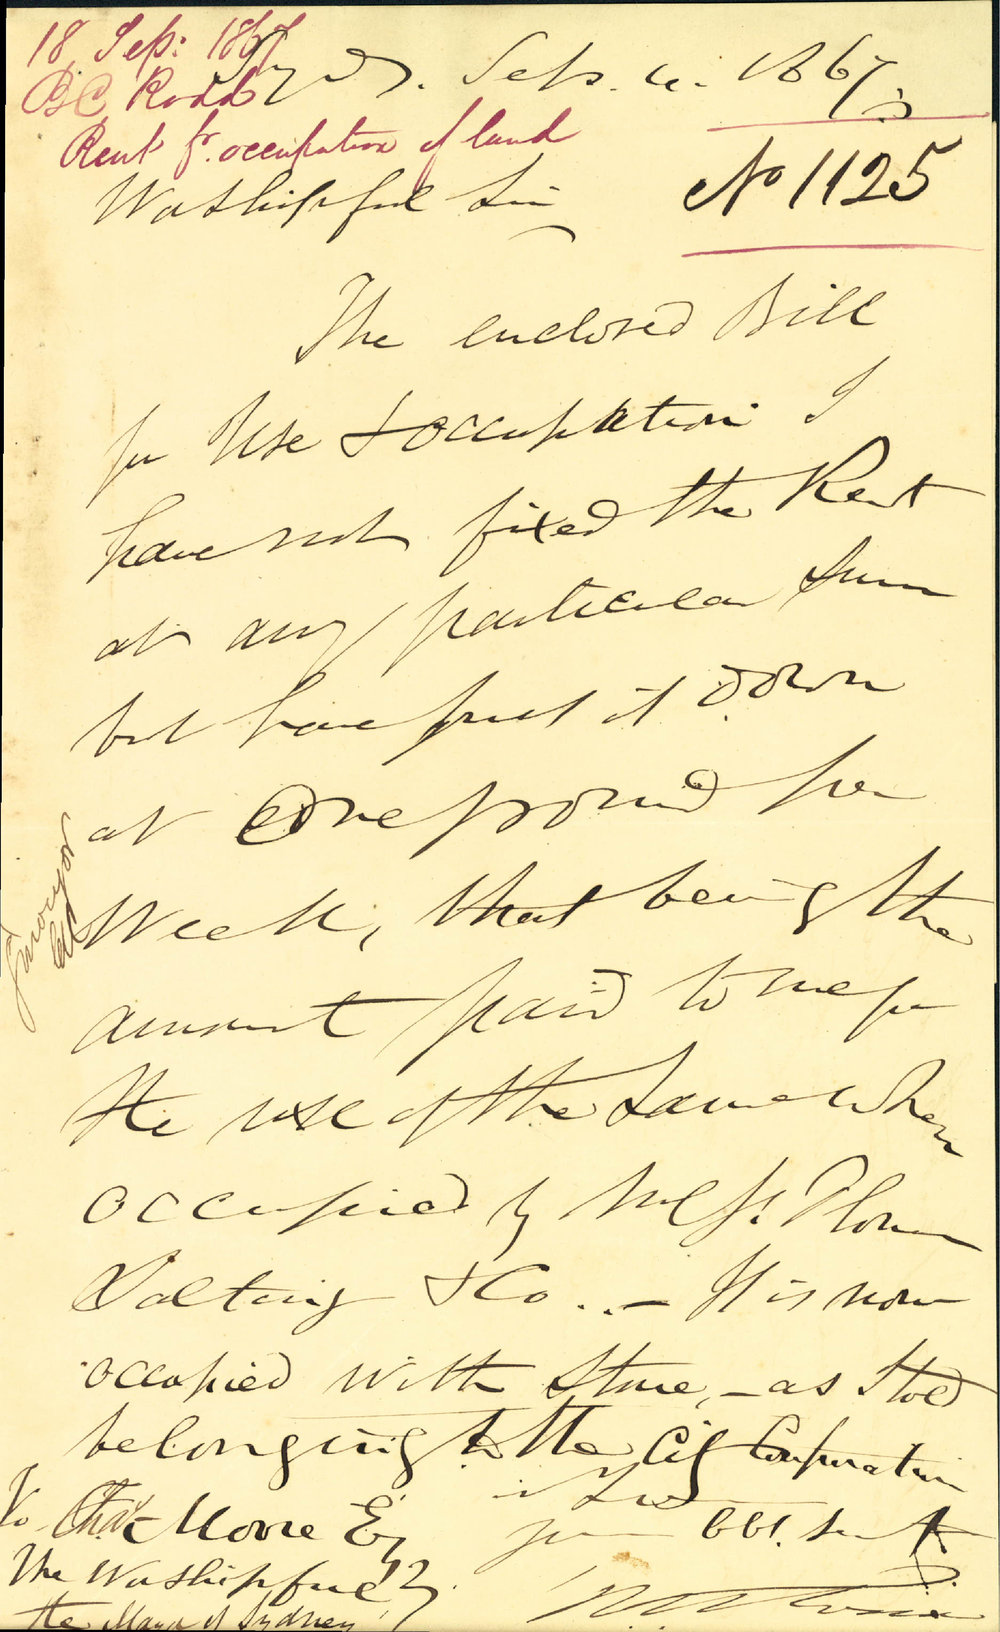 18 Sep: 1867
B C Rodd
Rent fr. occupation of land
Sydy. Sep. 1867
No 1125
Worshipful Sir
The enclosed Bill
for Use & occupation I
have not fixed the Rent
at any particular Sum
but have put it down
at One pound per
Week, that being the
amount paid to me for
the use of the Same when
occupied by Messs. Flower
Salting & Co.. – It is now
occupied with Stone, – as I told
belonging to the City Corporation
your obt. Sert
To Chas Moore Esq
The Worshipful
the Mayor of Sydney